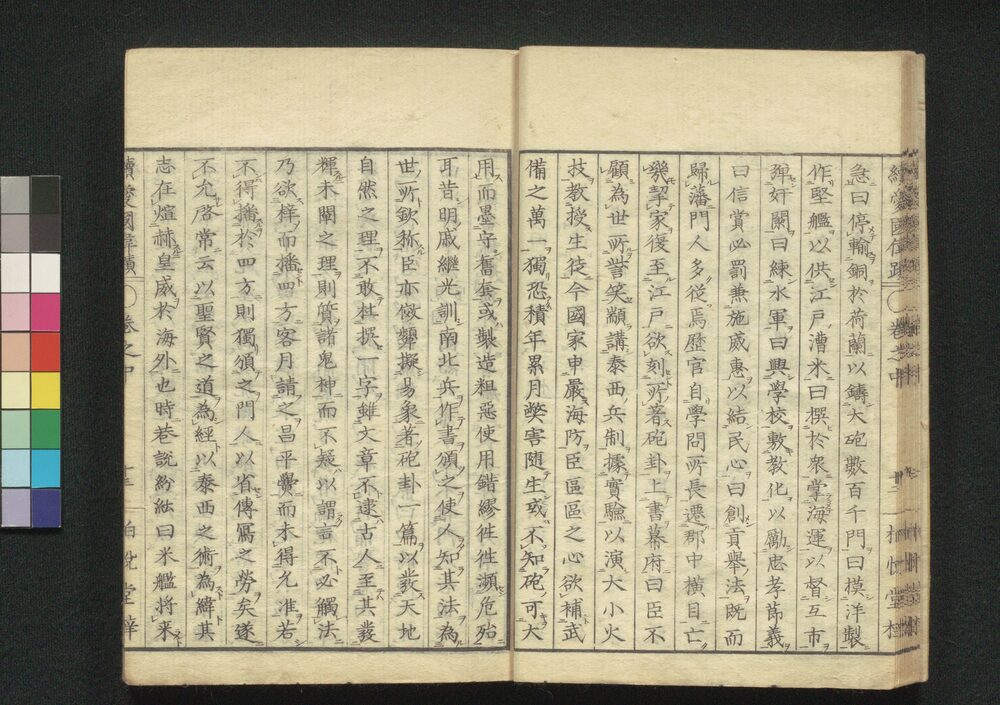 急曰停輸銅於荷蘭以鑄大砲數百千門曰模洋製
作堅艦以供江戸漕米曰撰於衆掌海運以督互市
弭奸闌曰練水軍曰興學校敷教化以勵忠孝節義
曰信賞必罰兼施威惠以結民心曰創貢舉法既而
歸藩門人多從焉歷官自學問所長遷郡中橫目亡
幾挈家復至江戸欲刻所著砲卦上書幕府曰臣不
顧為世所訾笑顓講泰西兵制據實驗以演大小火
技教授生徒今國家申嚴海防臣區區之心欲補武
備之萬一獨恐積年累月弊害隨生或不知砲可大
用而墨守舊套或製造粗惡使用錯繆往往瀕危殆
耳昔明戚繼光訓南北兵作書頒之使人知其法為
世所欽称臣亦倣顰擬易象著砲卦一篇以發天地
自然之理不敢杜撰一字雖文章不逮古人至其發
揮未闡之理則質諸鬼神而不疑以謂言不必觸法
乃欲梓而播四方容月請之昌平黌而未得允准若
不得播於四方則獨頒之門人以省傳寫之勞矣遂
不允啓常云以聖賢之道為經以泰西之術為緯其
志在煊赫皇威於海外也時巷說紛紜曰米艦將来
續愛國偉蹟 卷之中